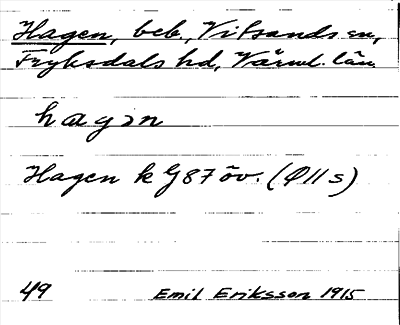 Hagen, beb., Vitsands sn,
Fryksdals hd, Värml. län
hagən
Hagen k G87 öv. (Ø11s)
49 Emil Eriksson 1915